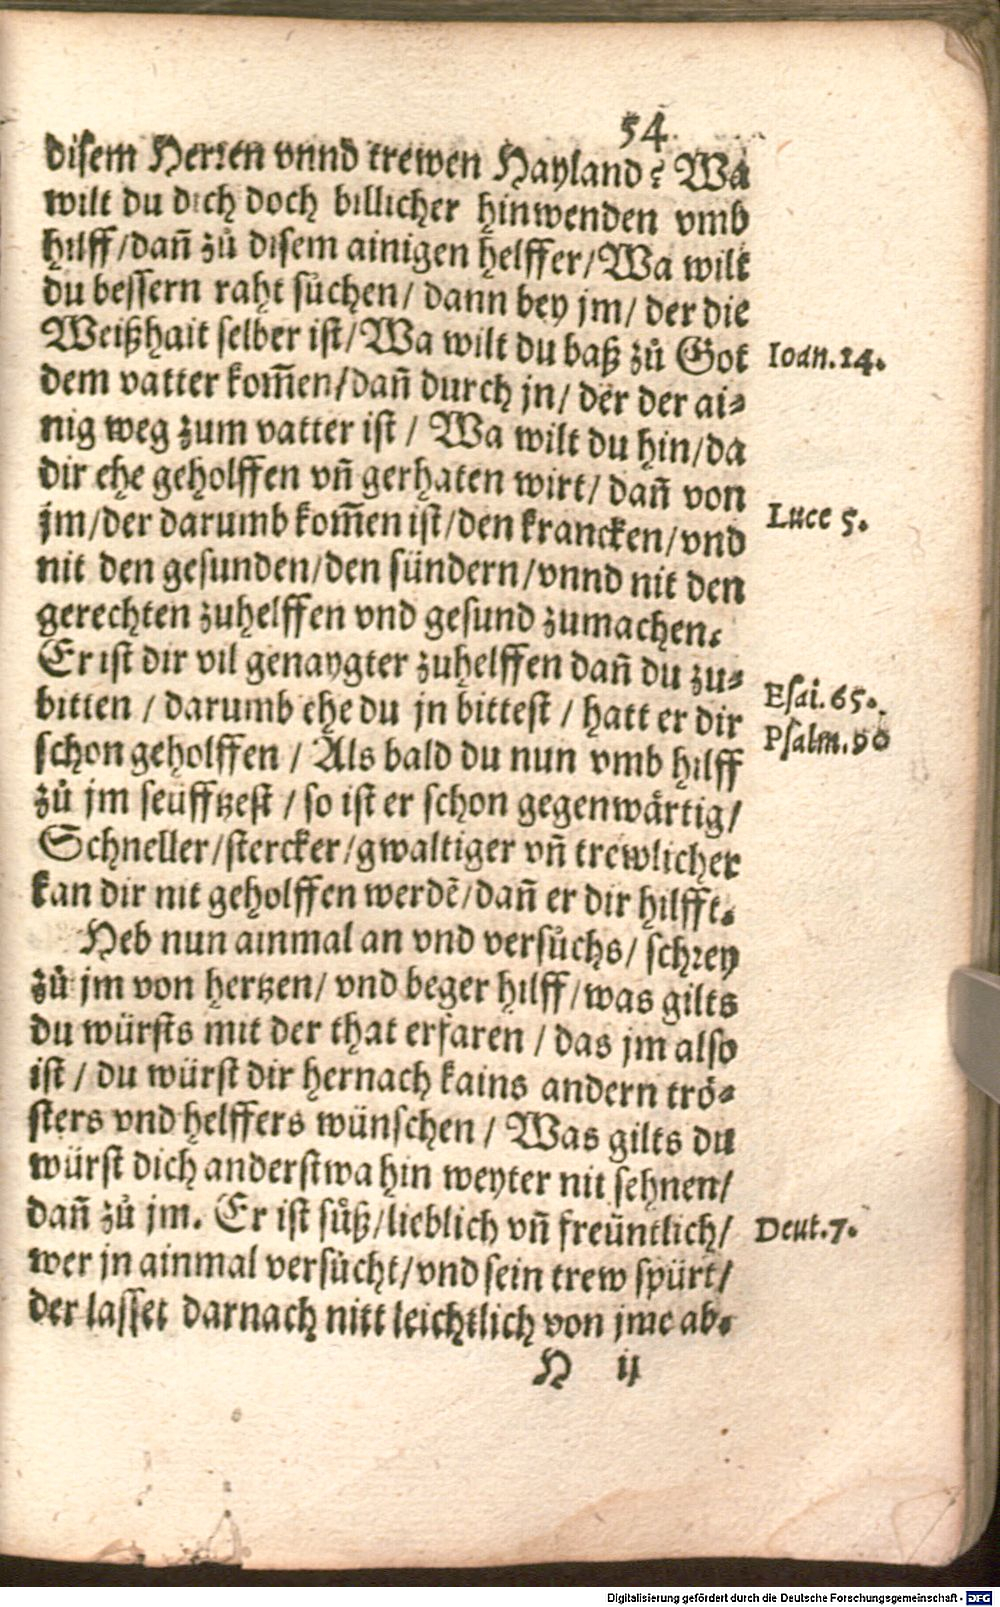 54
disem Herren vnnd trewen Hayland? Wa
wilt du dich doch billicher hinwenden vmb
hilff/dañ zů disem ainigen helffer/Wa wilt
du bessern raht sůchen/ dann bey jm/ der die
Weißhait selber ist/Wa wilt du baß zů Got
Ioan.14.
dem vatter kom̃en/dañ durch jn/ der der ai⸗
nig weg zum vatter ist / Wa wilt du hin/da
dir ehe geholffen vñ gerhaten wirt/ dañ von
jm/der darumb kom̃en ist/den krancken/vnd
Luce 5.
nit den gesunden/den sündern/vnnd nit den
gerechten zuhelffen vnd gesund zumachen.
Er ist dir vil genaygter zuhelffen dañ du zu⸗
bitten / darumb ehe du jn bittest / hatt er dir
Esai.65.
schon geholffen / Als bald du nun vmb hilff
Psalm.90
zů jm seüfftzest / so ist er schon gegenwärtig/
Schneller/stercker/gwaltiger vñ trewlicher
kan dir nit geholffen werdẽ/dañ er dir hilfft.
Heb nun ainmal an vnd versůchs/ schrey
zů jm von hertzen/ vnd beger hilff/was gilts
du würsts mit der that erfaren / das jm also
ist / du würst dir hernach kains andern trö⸗
sters vnd helffers wünschen / Was gilts du
würst dich anderstwa hin weyter nit sehnen/
dañ zů jm. Er ist sůß/lieblich vñ freüntlich/
Deut.7.
wer jn ainmal versůcht/vnd sein trew spürt/
der lasset darnach nitt leichtlich von jme ab.
H ij
Digitalisierung gefördert durch die Deutsche Forschungsgemeinschaft - DFG